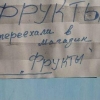 ФРУКТЫ
переехала в
магазин
"ФРУКТЫ"